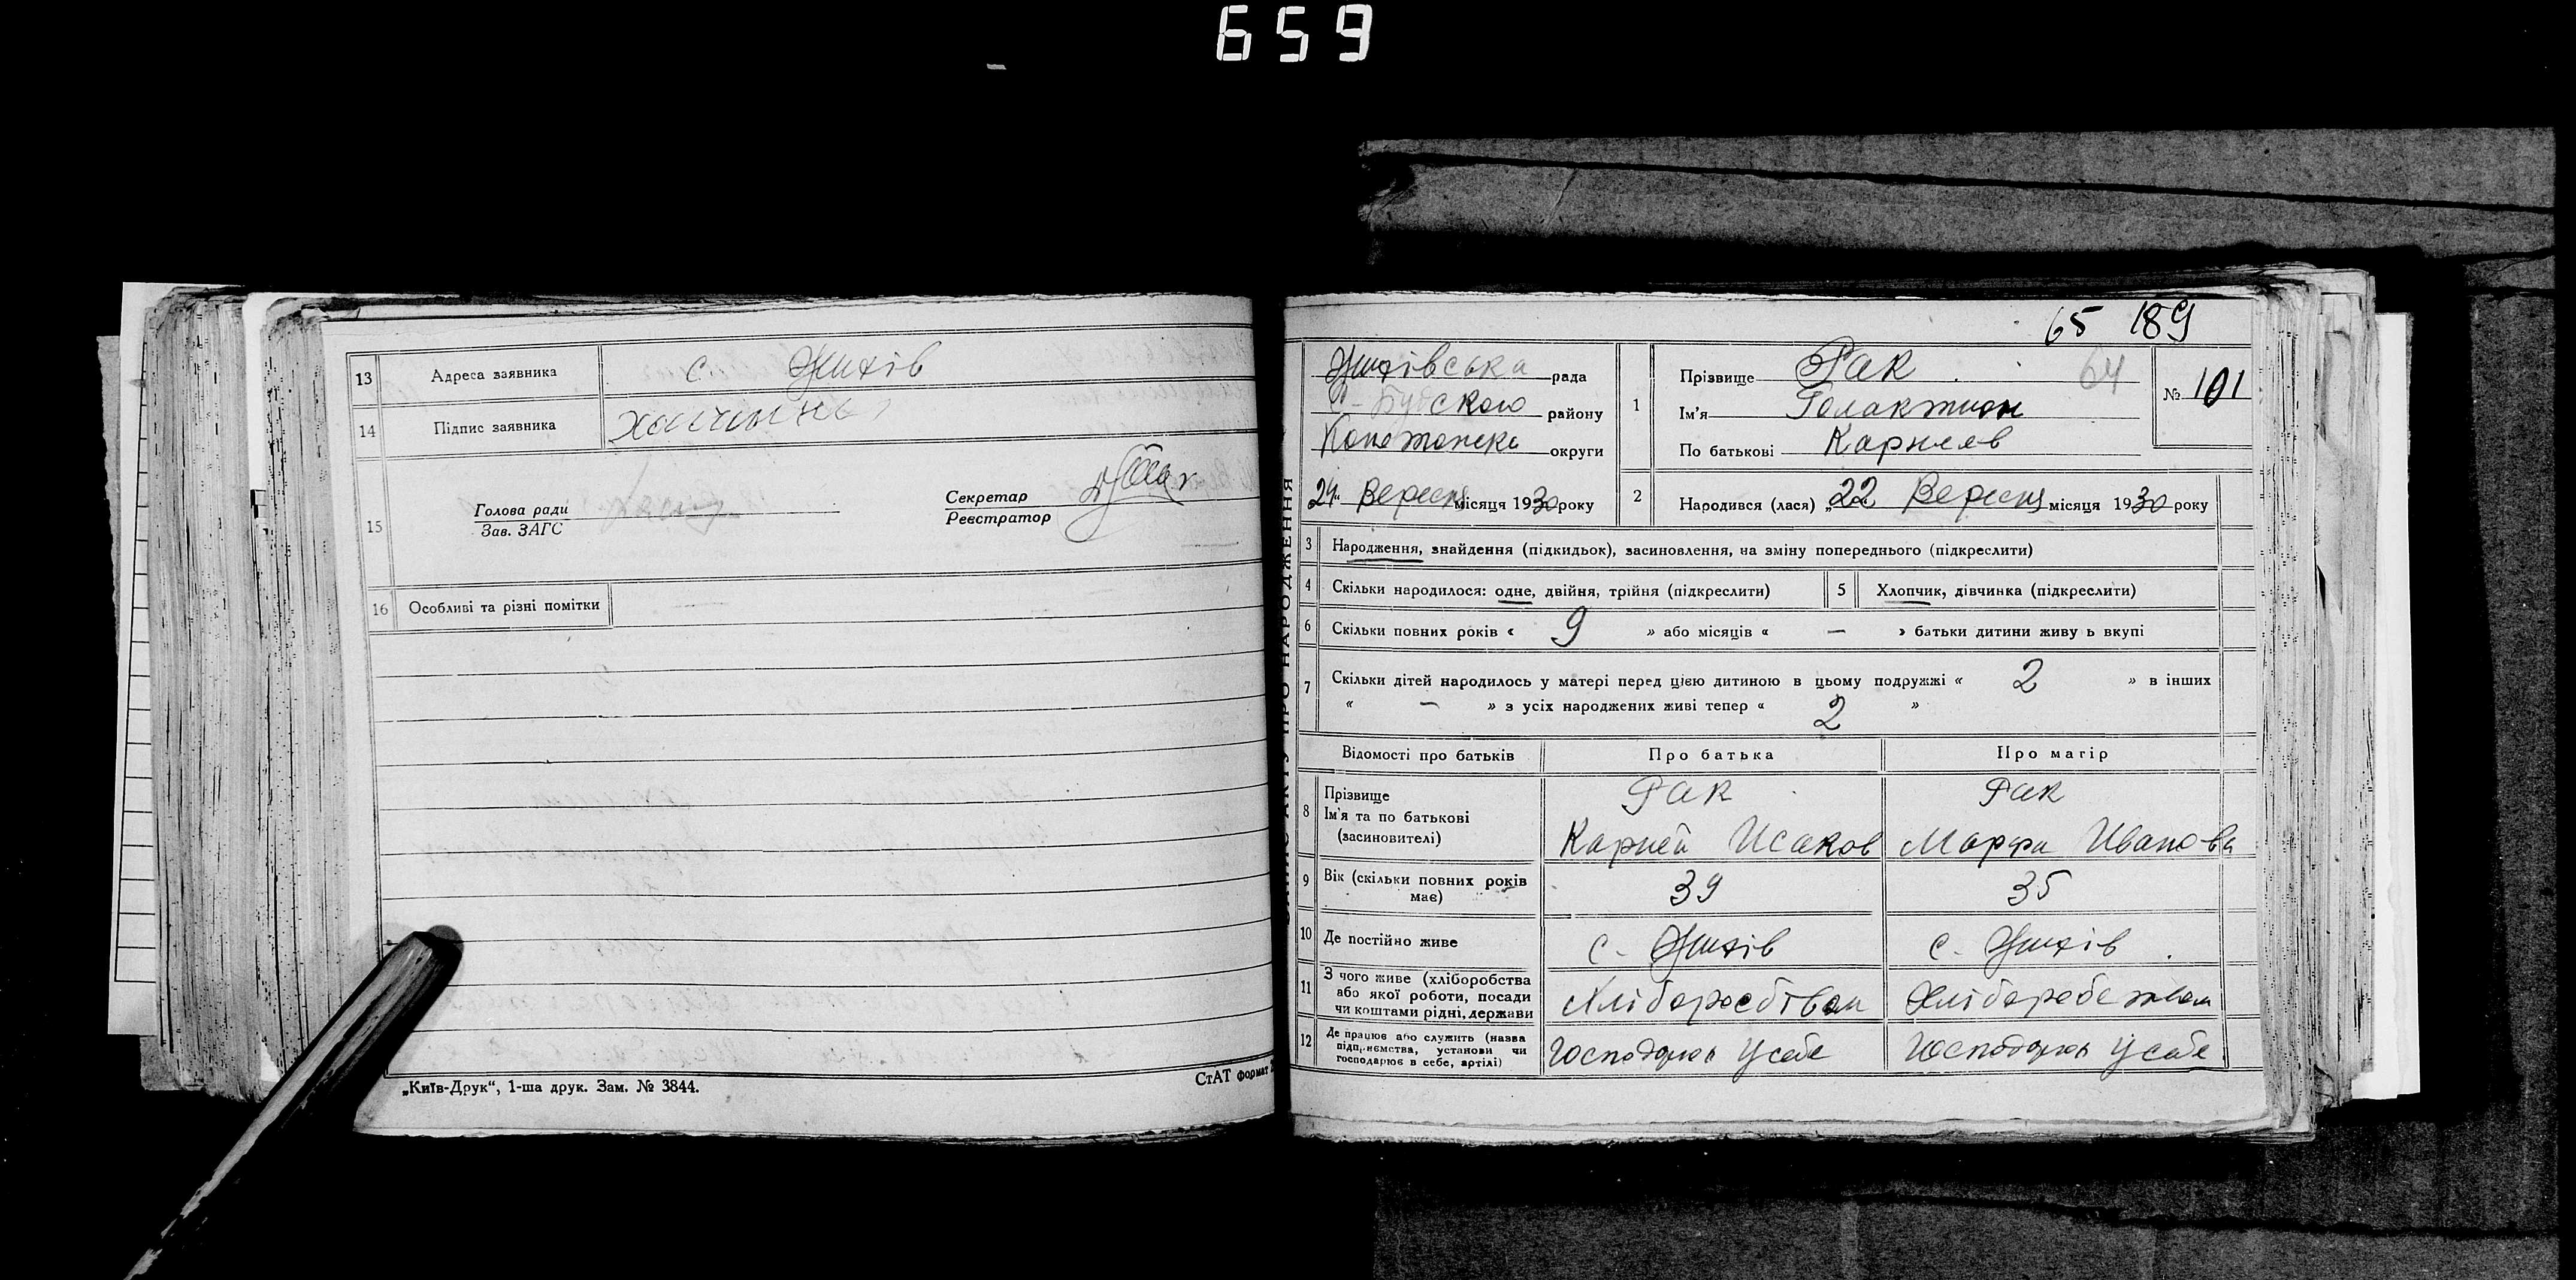 659
13 Адреса заявника с. Жихів
14 Підпис заявника
15 Голова ради
Зав. ЗАГС
Секретар
Реєстратор
16 Особливі та різні помітки
„Київ-Друк“, 1-ша друк. Зам. № 3844.
СтАТ формат
65 189
Жихівська рада
С-Будского району
округи
24 Вересня місяця 1930 року
1 Прізвище Рак
64
№ 101
Ім'я Голактион
По батькові Карнеев
2 Народився (лася) „22 Вересня місяця 1930 року
3 Народження, знайдення (підкидьок), засиновлення, на зміну попереднього (підкреслити)
4 Скільки народилося: одне, двійня, трійня (підкреслити)
5 Хлопчик, дівчинка (підкреслити)
6 Скільки повних років « 9 » або місяців « — » батьки дитини живу ь вкупі
7 Скільки дітей народилось у матері перед цією дитиною в цьому подружжі « 2 » в інших
« — » з усіх народжених живі тепер « 2 »
Відомості про батьків Про батька Про матір
8 Прізвище Рак Рак
Ім'я та по батькові
(засиновителі) Карней Исаков Марфа Иванова
9 Вік (скільки повних років
має) 39 35
10 Де постійно живе с. Жихів с. Жихів
11 З чого живе (хліборобства
або якої роботи, посади
чи коштами рідні, держави Хліборобством Хліборобством
12 Де працює або служить (назва
підприємства, установи чи
господарює в себе, артілі) Господарюя У себе Господарюя У себе
ЗАПИС АКТУ ПРО НАРОДЖЕННЯ